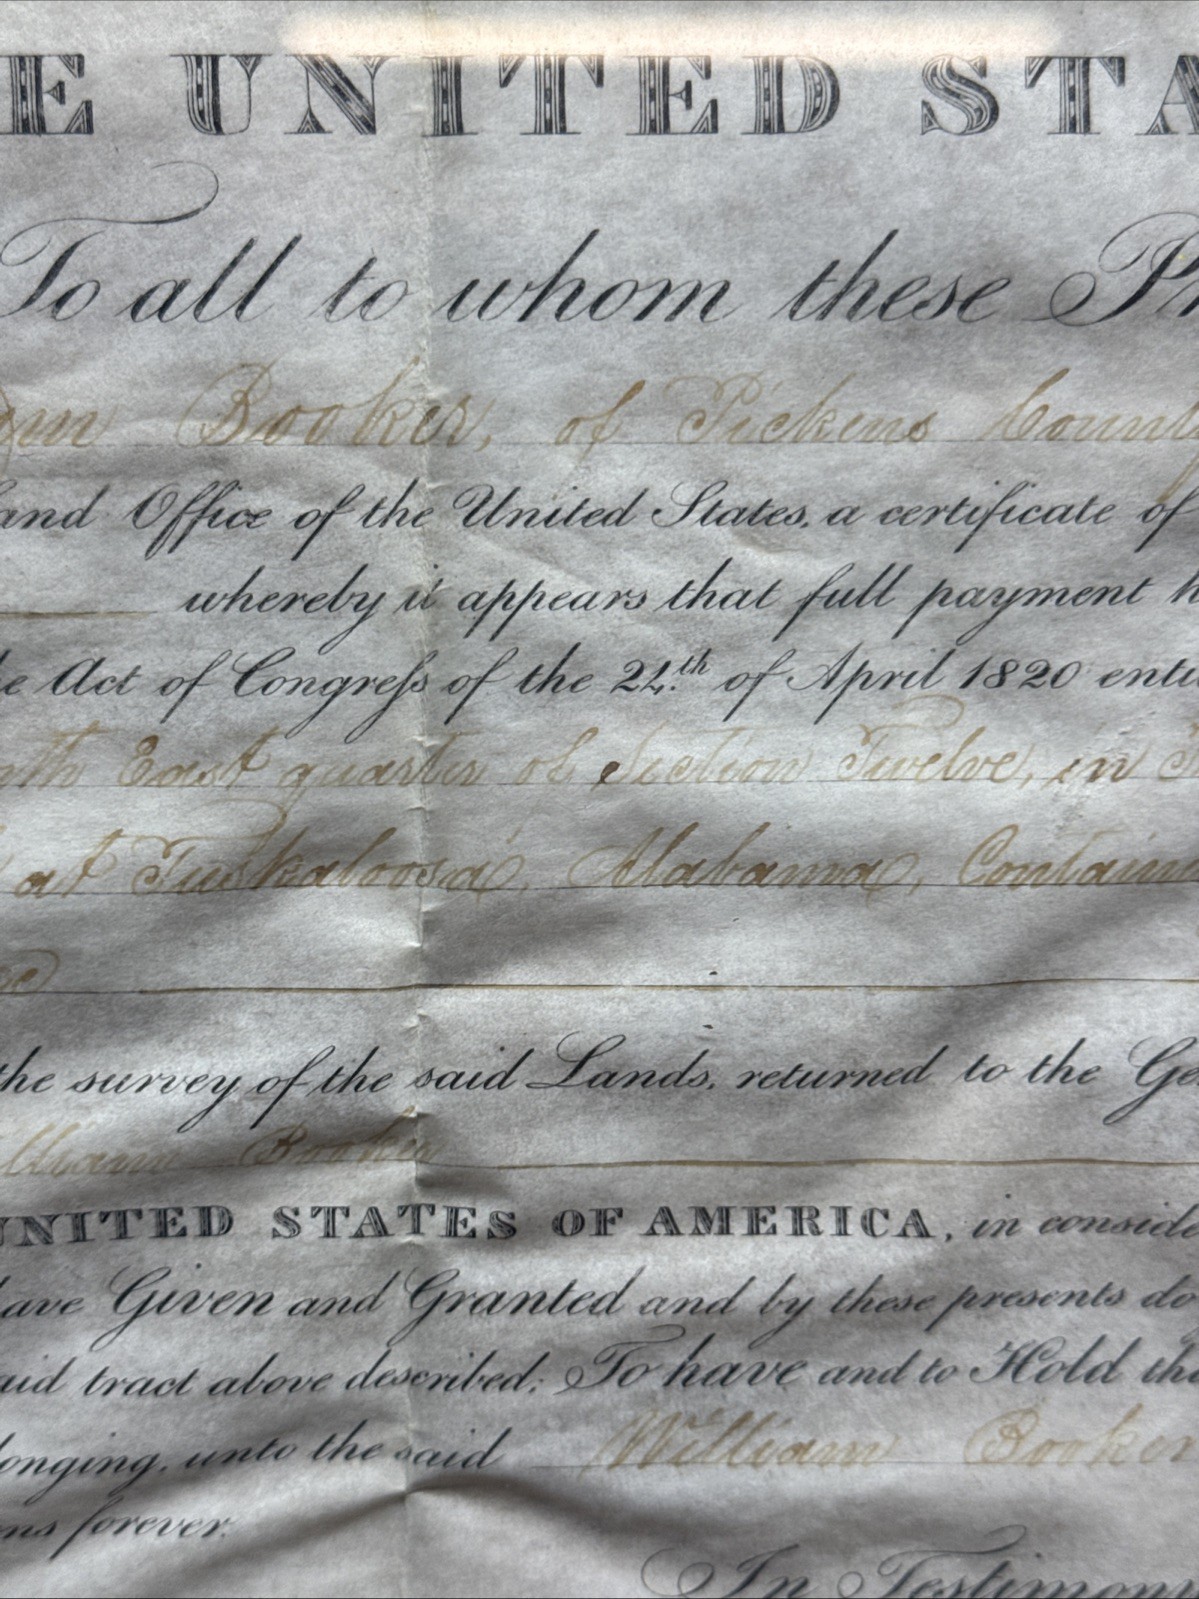 E UNITED STA
To all to whom these Pr
am Booker, of Pickins County
and Office of the United States, a certificate of
whereby it appears that full payment h
e Act of Congress of the 24.th of April 1820 enti
th East quarter of Section Twelve, in T
at Tuskaloosa, Alabama, Contain
the survey of the said Lands, returned to the Ge
illiam Booker
UNITED STATES OF AMERICA, in conside
ave Given and Granted and by these presents do
aid tract above described: To have and to Hold the
onging, unto the said William Booker
ns forever.
In Testimony